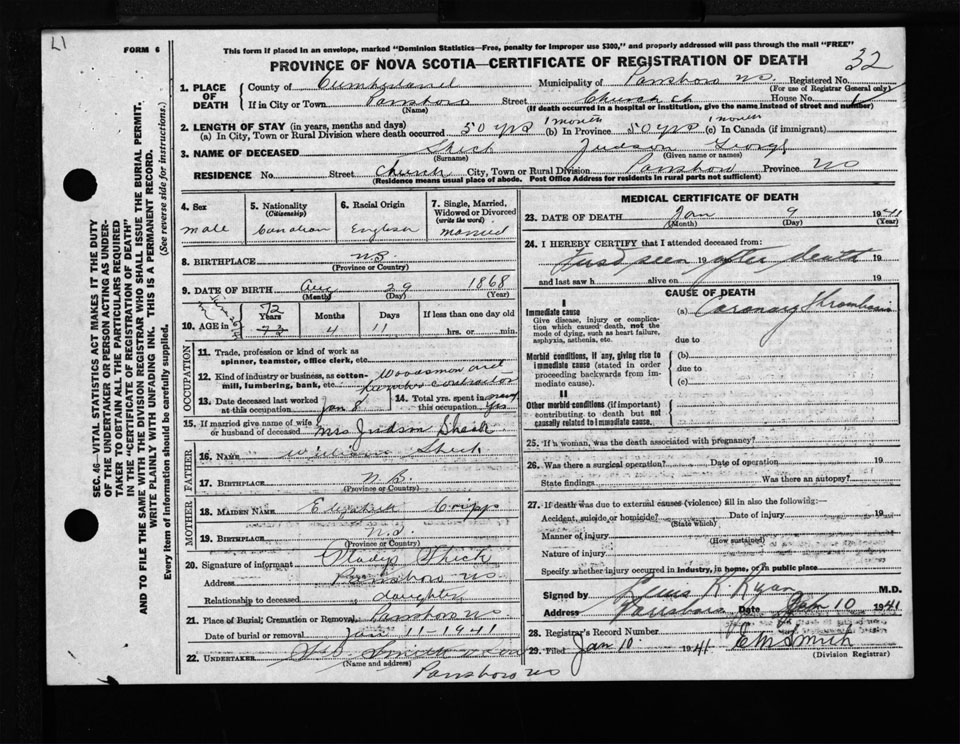 FORM 6
This form if placed in an envelope, marked "Dominion Statistics—Free, penalty for improper use $300," and properly addressed will pass through the mail "FREE"
PROVINCE OF NOVA SCOTIA—CERTIFICATE OF REGISTRATION OF DEATH 32
1. PLACE OF DEATH County of Cumberland Municipality of Parrsboro NS. Registered No. (For use of Registrar General only)
If in City or Town Parrsboro (Name) Street Church House No.
(If death occurred in a hospital or institution, give the name instead of street and number)
2. LENGTH OF STAY (in years, months and days)
(a) In City, Town or Rural Division where death occurred 50 yrs 1 month (b) In Province 50 yrs 1 month (c) In Canada (if immigrant)
3. NAME OF DECEASED Sheck (Surname) Judson George (Given name or names)
RESIDENCE No. Street Church City, Town or Rural Division Parrsboro Province NS
(Residence means usual place of abode. Post Office Address for residents in rural parts not sufficient)
4. Sex male
5. Nationality (Citizenship) Canadian
6. Racial Origin English
7. Single, Married, Widowed or Divorced (write the word) married
8. BIRTHPLACE (Province or Country)
9. DATE OF BIRTH Aug (Month) 29 (Day) 1868 (Year)
10. AGE in 72 Years 4 Months 11 Days If less than one day old hrs. or min.
OCCUPATION
11. Trade, profession or kind of work as spinner, teamster, office clerk, etc.
12. Kind of industry or business, as cotton-mill, lumbering, bank, etc. Woodsman and Lumber contractor
13. Date deceased last worked at this occupation Jan 8
14. Total yrs. spent in this occupation many yrs
15. If married give name of wife or husband of deceased Mrs Judson Sheck
FATHER
16. NAME William Sheck
17. BIRTHPLACE N.B. (Province or Country)
MOTHER
18. MAIDEN NAME Elizabeth Cripps
19. BIRTHPLACE (Province or Country)
20. Signature of informant Gladys Sheck
Address Parrsboro NS
Relationship to deceased daughter
21. Place of Burial, Cremation or Removal Parrsboro NS.
Date of burial or removal Jan 11-1941
22. UNDERTAKER Smith (Name and address)
Parrsboro NS
MEDICAL CERTIFICATE OF DEATH
23. DATE OF DEATH Jan (Month) 9 (Day) 1941 (Year)
24. I HEREBY CERTIFY that I attended deceased from:
first seen after death 19
and last saw h alive on 19
CAUSE OF DEATH
I
Immediate cause (a) Coronary Thrombosis
Give disease, injury or complication which caused death, not the mode of dying, such as heart failure, asphyxia, asthenia, etc. due to
Morbid conditions, if any, giving rise to immediate cause (stated in order proceeding backwards from immediate cause). (b) due to (c)
II
Other morbid conditions (if important) contributing to death but not causally related to immediate cause.
25. If a woman, was the death associated with pregnancy?
26. Was there a surgical operation? Date of operation 19
State findings Was there an autopsy?
27. If death was due to external causes (violence) fill in also the following:—
Accident, suicide or homicide? (State which) Date of injury 19
Manner of injury (How sustained)
Nature of injury
Specify whether injury occurred in industry, in home, or in public place
Signed by K. Ryan M.D.
Address Parrsboro Date Jan 10 1941
28. Registrar's Record Number
29. Filed Jan 10 1941 Smith (Division Registrar)
SEC. 46—VITAL STATISTICS ACT MAKES IT THE DUTY
OF THE UNDERTAKER OR PERSON ACTING AS UNDER-
TAKER TO OBTAIN ALL THE PARTICULARS REQUIRED
IN THE "CERTIFICATE OF REGISTRATION OF DEATH"
AND TO FILE THE SAME WITH THE DIVISION REGISTRAR WHO SHALL ISSUE THE BURIAL PERMIT.
WRITE PLAINLY WITH UNFADING INK. THIS IS A PERMANENT RECORD.
Every item of information should be carefully supplied. (See reverse side for instructions.)